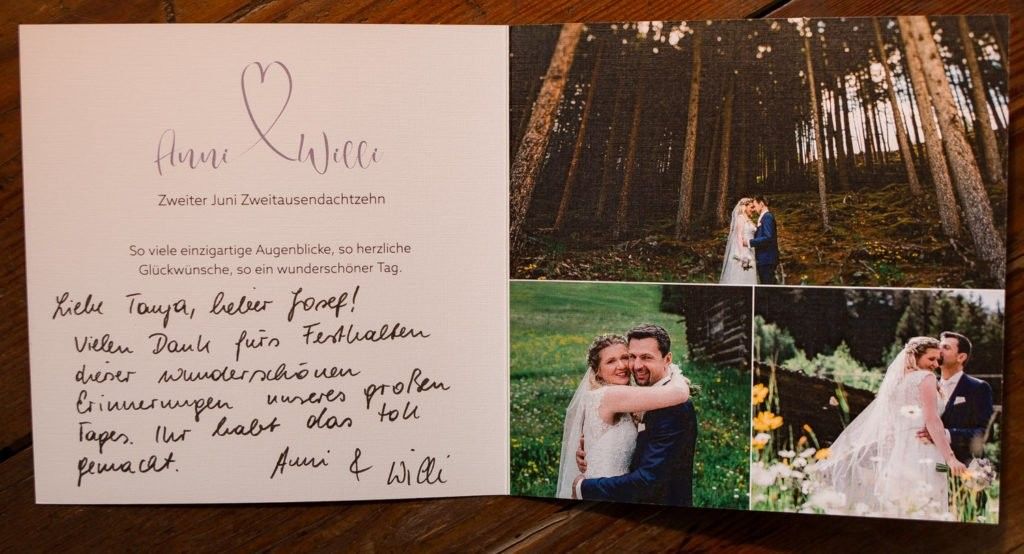 Anni Willi
Zweiter Juni Zweitausendachtzehn
So viele einzigartige Augenblicke, so herzliche
Glückwünsche, so ein wunderschöner Tag.
Liebe Tanja, lieber Josef!
Vielen Dank fürs Festhalten
dieser wunderschönen
Erinnerungen unseres großen
Tages. Ihr habt das toll
gemacht.
Anni & Willi